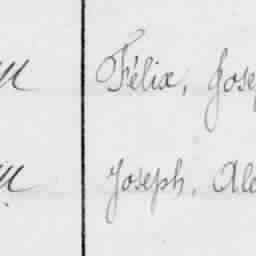 m Félix, Jose
m Joseph, Ale